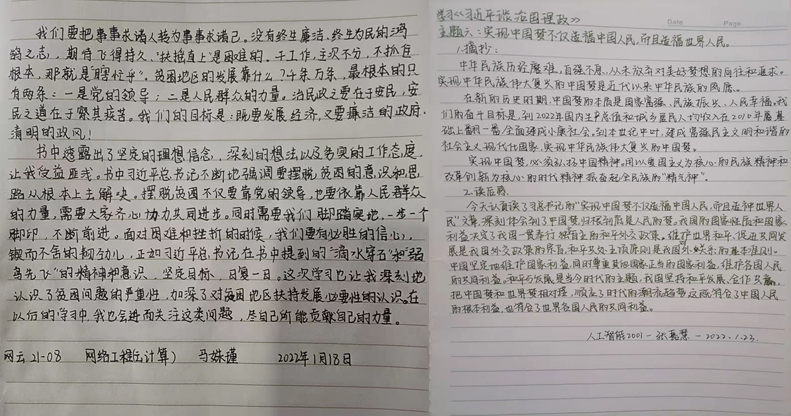 我们要把事事求诸人转为事事求诸己。没有终生廉洁、终生为民的鸿
鹄之志，期待飞得持久、"扶摇直上"是困难的，干工作，主次不分，不抓住
根本，那就是"瞎忙乎"。贫困地区的发展靠什么？千条万条，最根本的只
有两条：一是党的领导；二是人民群众的力量。治民政之要在于安民，安
民之道在于察其疾苦。我们的目标是：既要发展经济，又要廉洁的政府，
清明的政风！
书中透露出了坚定的理想信念，深刻的想法以及务实的工作态度，
让我受益匪浅。书中习近平总书记不断地强调要摆脱贫困的意识和思
路从根本上去解决。摆脱贫困不仅要靠党的领导，也要依靠人民群众
的力量，需要大家齐心协力共同进步。同时需要我们脚踏实地，一步一个
脚印，不断前进。面对困难和挫折的时候，我们要有必胜的信心，
锲而不舍的韧劲儿，正如习近平总书记在书中提到的"滴水穿石"和"弱
鸟先飞"的精神和意识，坚定目标，日复一日。这次学习也让我深刻地
认识了贫困问题的严重性，加深了对贫困地区扶持发展必要性的认识。在
以后的学习中，我也会进而关注这类问题，尽自己所能贡献自己的力量。
网云21-08 网络工程(云计算) 马姝瑾 2022年1月18日
学习《习近平谈治国理政》
Date Page
主题六：实现中国梦不仅造福中国人民，而且造福世界人民。
1.摘抄：
中华民族历经磨难，自强不息，从未放弃对美好梦想的向往和追求。
实现中华民族伟大复兴的中国梦是近代以来中华民族的夙愿。
在新的历史时期，中国梦的本质是国家富强、民族振兴、人民幸福。我
们的奋斗目标是，到2022年国内生产总值和城乡居民人均收入在2010年基
础上翻一番，全面建成小康社会。到本世纪中叶，建成富强民主文明和谐的
社会主义现代化国家，实现中华民族伟大复兴的中国梦。
实现中国梦，必须弘扬中国精神。用以爱国主义为核心的民族精神和
改革创新为核心的时代精神振奋起全民族的"精气神"。
2.读后感
今天认真读了习总书记的"实现中国梦不仅造福中国人民，而且造福世界人
民"文章，深刻体会到了中国梦归根到底是人民的梦。我国的国家性质和国家
利益决定了我国一贯奉行独立自主的和平外交政策。维护世界和平、促进共同发
展是我国外交政策的宗旨，和平共处五项原则是我国外交关系的基本准则。
中国坚定地维护国家利益，同时尊重其他国家正当的国家利益，维护各国人民
的共同利益。和平与发展是当今时代的主题，我国坚持和平发展，合作共赢。
把中国梦和世界梦相对接，顺应了时代的潮流趋势，这既符合了中国人民
的根本利益，也符合了世界各国人民的共同利益。
人工智能2001-张慕慧-2022.1.23.